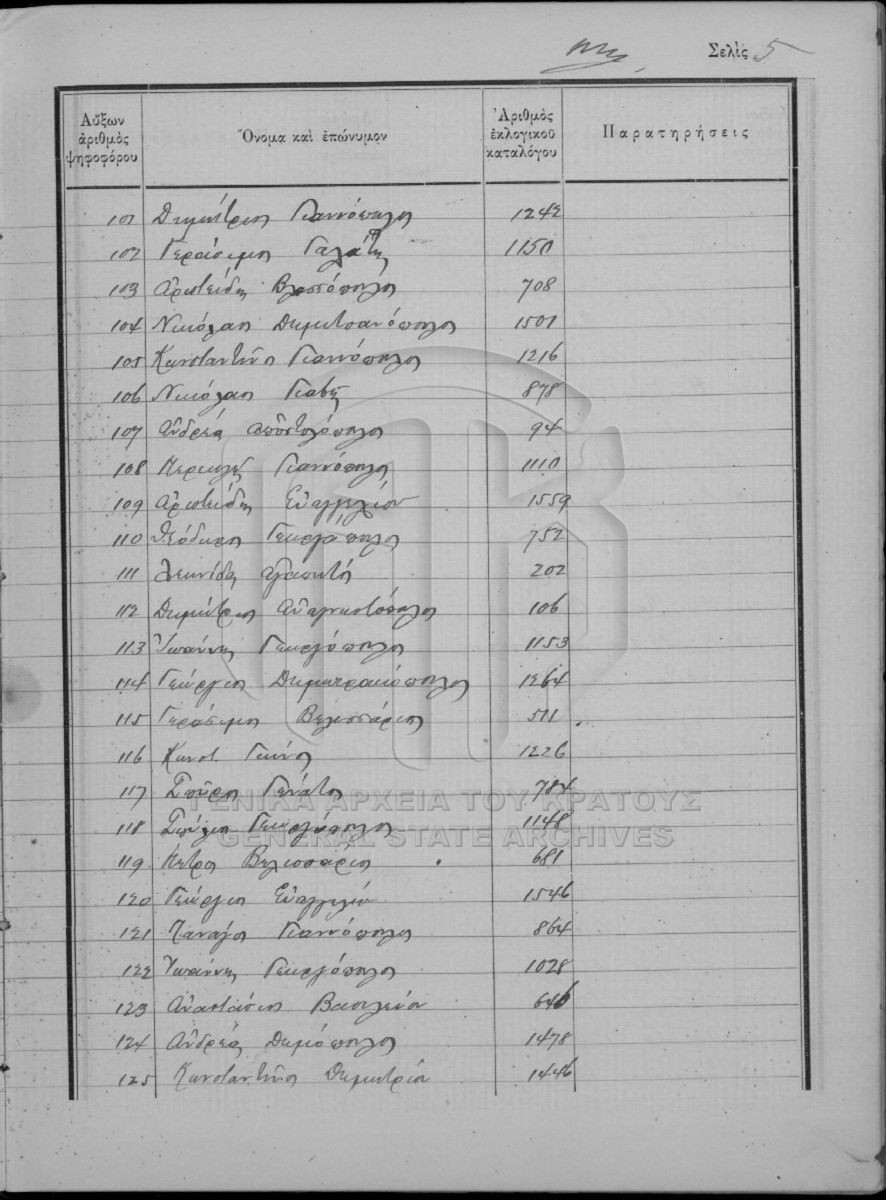 Σελὶς 5
Αὔξων ἀριθμὸς ψηφοφόρου Ὄνομα καὶ ἐπώνυμον Ἀριθμὸς ἐκλογικοῦ καταλόγου Παρατηρήσεις
101 Δημήτριος Γιαννόπουλος 1242
102 Γεράσιμος Γαλάτης 1150
103 Ἀριστείδης Βλασσόπουλος 708
104 Νικόλαος Δημητσανόπουλος 1501
105 Κωνσταντῖνος Γιαννόπουλος 1216
106 Νικόλαος 878
107 Ἀνδρέας Ἀποστολόπουλος 94
108 Περικλῆς Γιαννόπουλος 1110
109 Ἀριστείδης Εὐαγγελίου 1559
110 Θεόδωρος Γεωργόπουλος 752
111 Λεωνίδας Ἀγαπητός 202
112 Δημήτριος Ἀναγνωστόπουλος 106
113 Ἰωάννης Γεωργόπουλος 1153
114 Γεώργιος Δημητρακόπουλος 1264
115 Γεράσιμος Βελισσάριος 511
116 Κωνστ. Γκίνος 1226
117 Σπῦρος Γενάτος 784
118 Σπύρος Γεωργόπουλος 1148
119 Πέτρος Βελισσάριος 681
120 Γεώργιος Εὐαγγελίου 1546
121 Παναγῆς Γιαννόπουλος 864
122 Ἰωάννης Γεωργόπουλος 1028
123 Ἀναστάσιος Βασιλείου 646
124 Ἀνδρέας Δημόπουλος 1478
125 Κωνσταντῖνος Δημητρίου 1446
ΓΕΝΙΚΑ ΑΡΧΕΙΑ ΤΟΥ ΚΡΑΤΟΥΣ
GENERAL STATE ARCHIVES